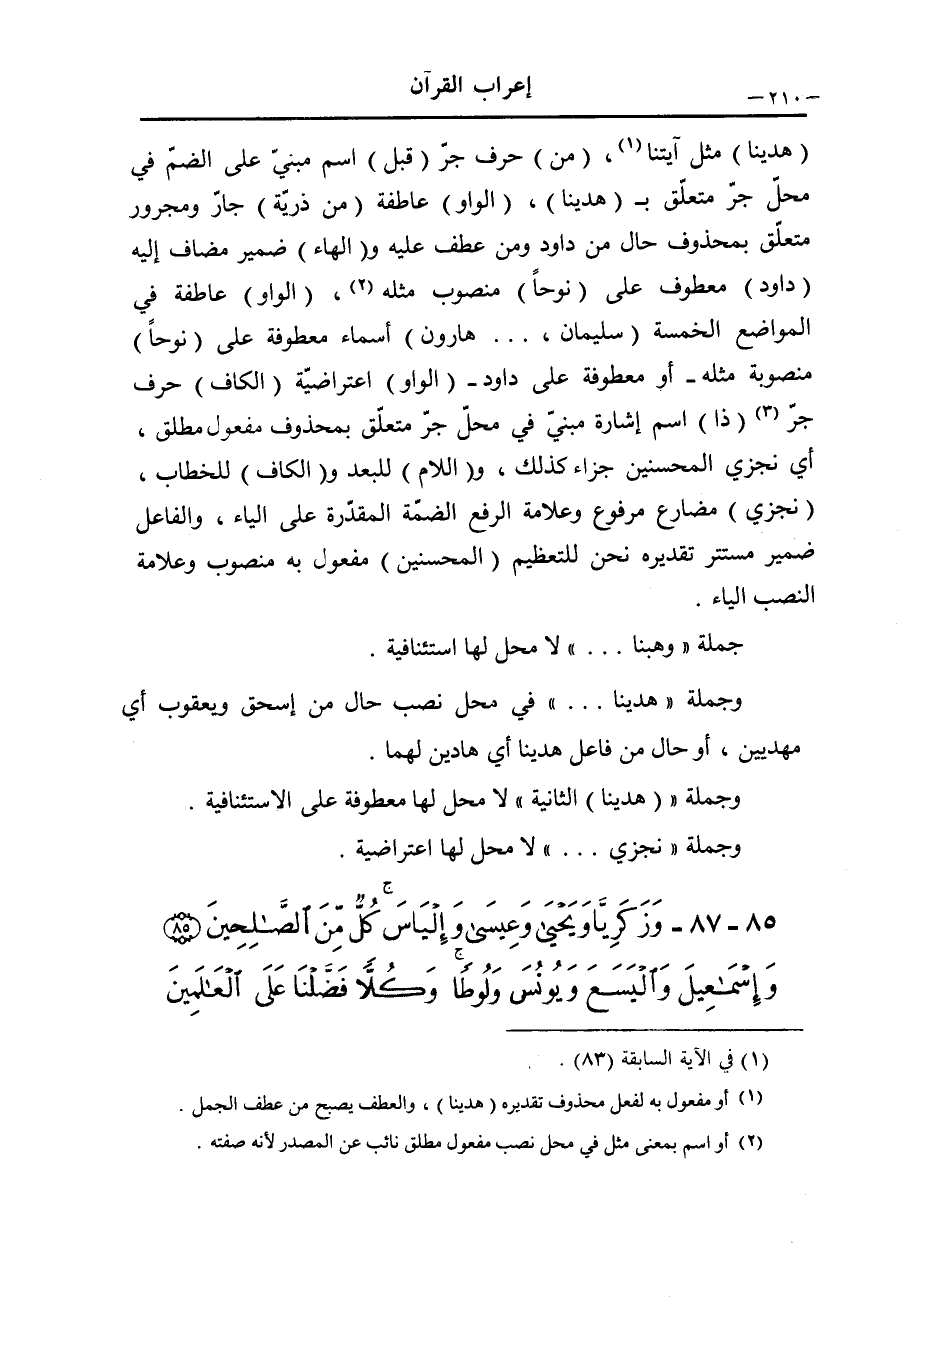 إعراب القرآن
— ٢١٠ —
( هدينا ) مثل آيتنا (١)، ( من ) حرف جرّ ( قبل ) اسم مبنيّ على الضمّ في
محلّ جرّ متعلّق بـ ( هدينا ) ، ( الواو ) عاطفة ( من ذريّة ) جارّ ومجرور
متعلّق بمحذوف حال من داود ومن عطف عليه و( الهاء ) ضمير مضاف إليه
( داود ) معطوف على ( نوحاً ) منصوب مثله (٢) ، ( الواو ) عاطفة في
المواضع الخمسة ( سليمان ، ... هارون ) أسماء معطوفة على ( نوحاً )
منصوبة مثله ـ أو معطوفة على داود ـ ( الواو ) اعتراضيّة ( الكاف ) حرف
جرّ (٣) ( ذا ) اسم إشارة مبنيّ في محلّ جرّ متعلّق بمحذوف مفعول مطلق ،
أي نجزي المحسنين جزاء كذلك ، و( اللام ) للبعد و( الكاف ) للخطاب ،
( نجزي ) مضارع مرفوع وعلامة الرفع الضمّة المقدّرة على الياء ، والفاعل
ضمير مستتر تقديره نحن للتعظيم ( المحسنين ) مفعول به منصوب وعلامة
النصب الياء .
جملة « وهبنا ... » لا محل لها استئنافية .
وجملة « هدينا ... » في محل نصب حال من إسحق ويعقوب أي
مهديين ، أو حال من فاعل هدينا أي هادين لهما .
وجملة « ( هدينا ) الثانية » لا محل لها معطوفة على الاستئنافية .
وجملة « نجزي ... » لا محل لها اعتراضية .
٨٥ ـ ٨٧ ـ وَزَكَرِيَّا وَيَحْيَىٰ وَعِيسَىٰ وَإِلْيَاسَ ۖ كُلٌّ مِّنَ ٱلصَّـٰلِحِينَ ﴿٨٥﴾
وَإِسْمَـٰعِيلَ وَٱلْيَسَعَ وَيُونُسَ وَلُوطًا ۚ وَكُلًّا فَضَّلْنَا عَلَى ٱلْعَـٰلَمِينَ
(١) في الآية السابقة (٨٣) .
(١) أو مفعول به لفعل محذوف تقديره ( هدينا ) ، والعطف يصبح من عطف الجمل .
(٢) أو اسم بمعنى مثل في محل نصب مفعول مطلق نائب عن المصدر لأنه صفته .